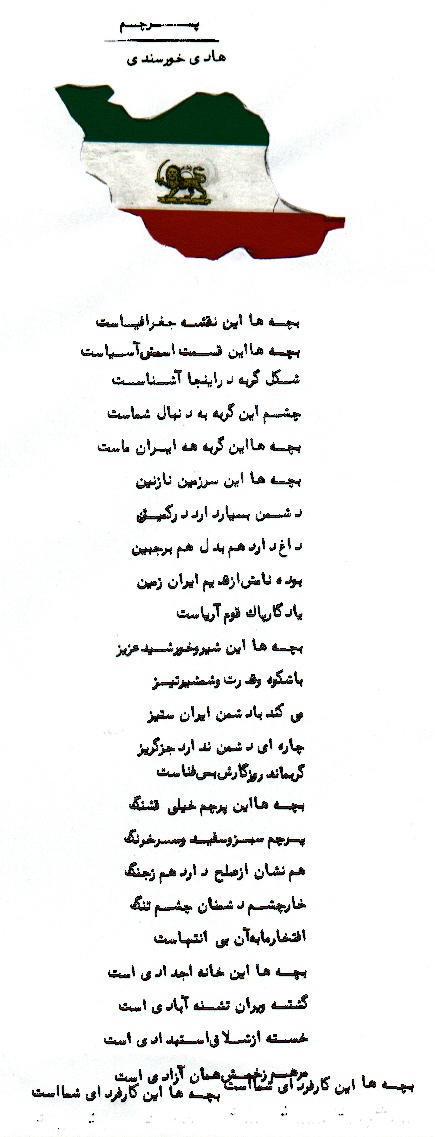 پرچم
هادی خورسندی
بچه ها این نقشه جغرافیاست
بچه ها این قسمت اسمش آسیاست
شکل گربه در اینجا آشناست
چشم این گربه به دنبال شماست
بچه ها این گربه هه ایران ماست
بچه ها این سرزمین نازنین
دشمن بسیار دارد در کمین
داغ دارد هم بدل هم برجبین
بوده نامش از قدیم ایران زمین
یادگار پاک قوم آریاست
بچه ها این شیر و خورشید عزیز
باشکوه و قدرت و شمشیر تیز
می کند با دشمن ایران ستیز
چاره ای دشمن ندارد جز گریز
گر بماند روزگارش بی فناست
بچه ها این پرچم خیلی قشنگ
پرچم سبز و سفید و سرخ رنگ
هم نشان از صلح دارد هم ز جنگ
خار چشم دشمنان چشم تنگ
افتخار ما به آن بی انتهاست
بچه ها این خانه اجدادی است
گشته ویران تشنه آبادی است
خسته از شلاق استبدادی است
مرهم زخمش همان آزادی است
بچه ها این کار فردای شما است
بچه ها این کار فردای شما است